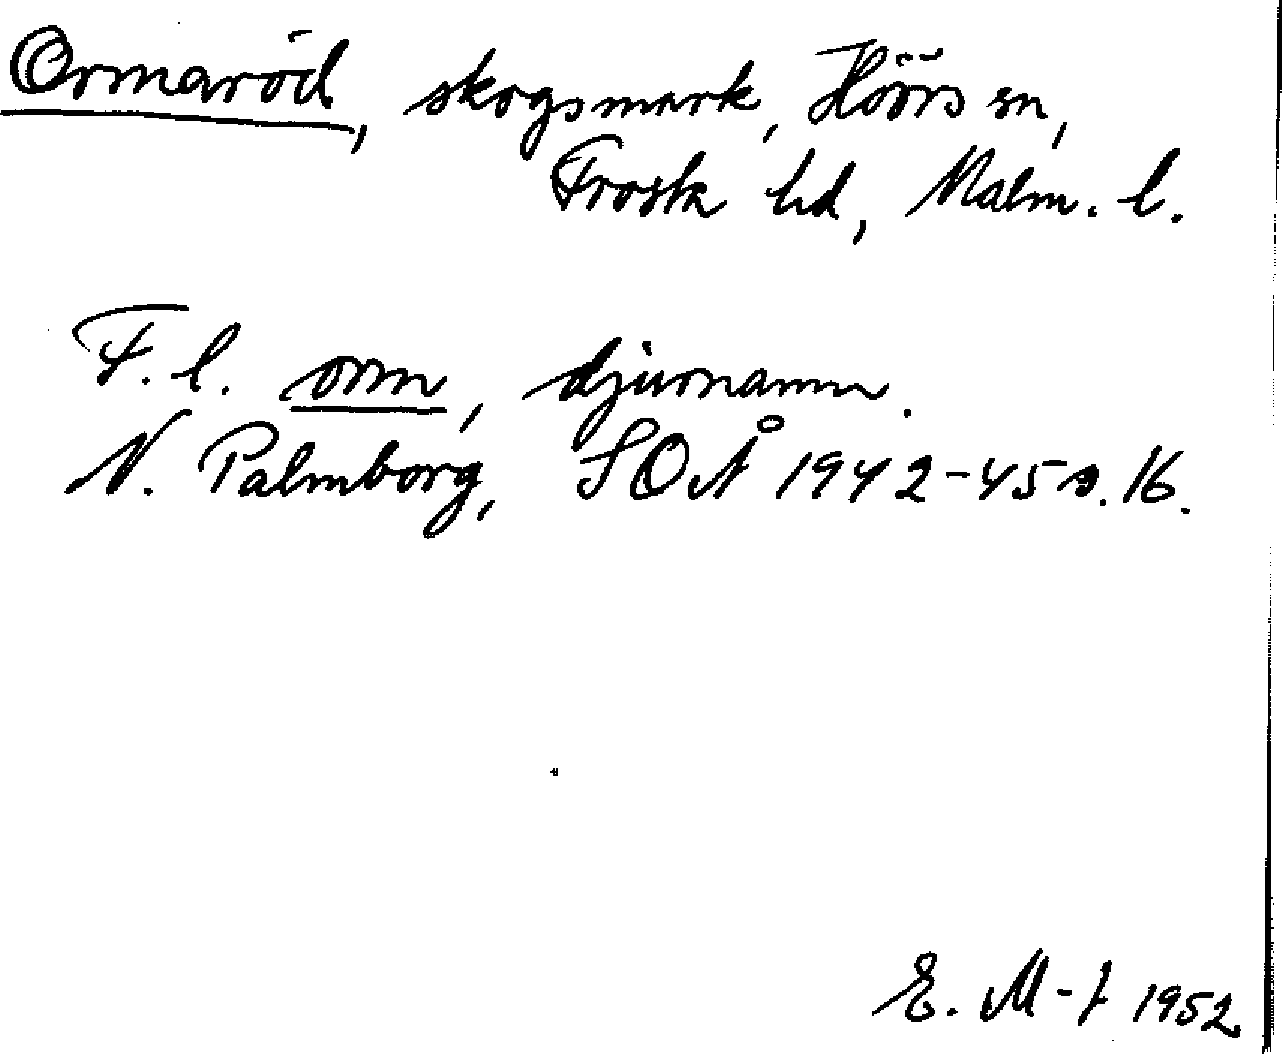 Ormaröd, skogsmark, Höörs sn,
Frosta hd, Malm. l.
F. l. orm, djurnamn.
N. Palmborg, SOÅ 1942-45 s. 16.
E. M-t 1952